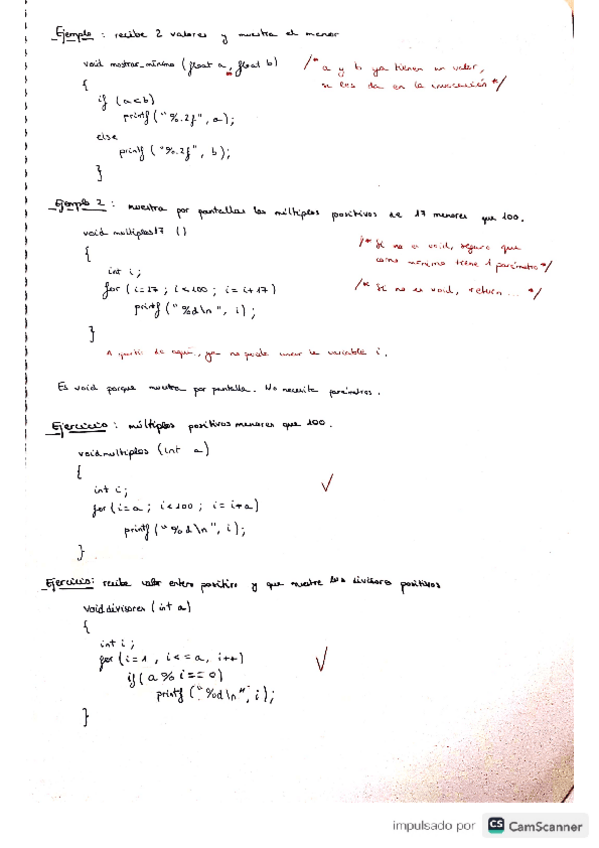 Ejemplo : recibe 2 valores y muestra el menor
void mostrar_minimo (float a, float b)
/* a y b ya tienen un valor,
se les da en la invocación */
{
if (a<b)
printf("%.2f", a);
else
printf("%.2f", b);
}
Ejemplo 2 : muestra por pantallas los múltiplos positivos de 17 menores que 100.
void multiplos17 ()
/* Si no es void, seguro que
como mínimo tiene 1 parámetro */
{
int i;
for (i=17 ; i<100 ; i=i+17)
/* Si no es void, return ... */
printf("%d\n", i);
}
A partir de aquí, ya no puede usar la variable i.
Es void porque muestra por pantalla. No necesita parámetros.
Ejercicio : múltiplos positivos menores que 100.
void multiplos (int a)
{
int i;
for (i=a ; i<100 ; i=i+a)
printf("%d\n", i);
}
Ejercicio: recibe valor entero positivo y que muestre los divisores positivos
void divisores (int a)
{
int i;
for (i=1 , i<=a, i++)
if(a%i==0)
printf("%d\n", i);
}
impulsado por CS CamScanner